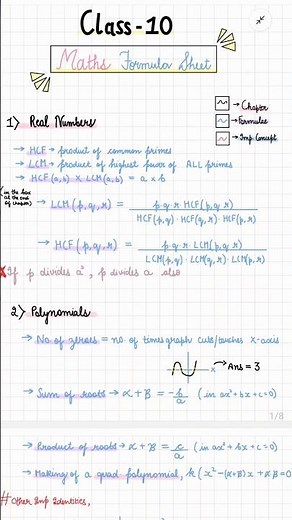 Class-10
Maths Formula Sheet
→ Chapter
→ Formulas
→ Imp Concept
1) Real Numbers
→ HCF → product of common primes
→ LCM → product of highest power of ALL primes
→ HCF(a,b) × LCM(a,b) = a × b
(in the box at the end of chapter)
→ LCM(p,q,r) = p·q·r·HCF(p,q,r) / HCF(p,q)·HCF(q,r)·HCF(r,p)
→ HCF(p,q,r) = p·q·r·LCM(p,q,r) / LCM(p,q)·LCM(q,r)·LCM(p,r)
If p divides a², p divides a also
2) Polynomials
→ No of zeroes = no. of times graph cuts/touches x-axis
x → Ans = 3
→ Sum of roots → α + β = -b/a (in ax²+bx+c=0)
1/8
→ Product of roots → α + β = c/a (in ax²+bx+c=0)
→ Making of a quad polynomial, k(x²-(α+β)x + αβ=0
# Other Imp Identities,